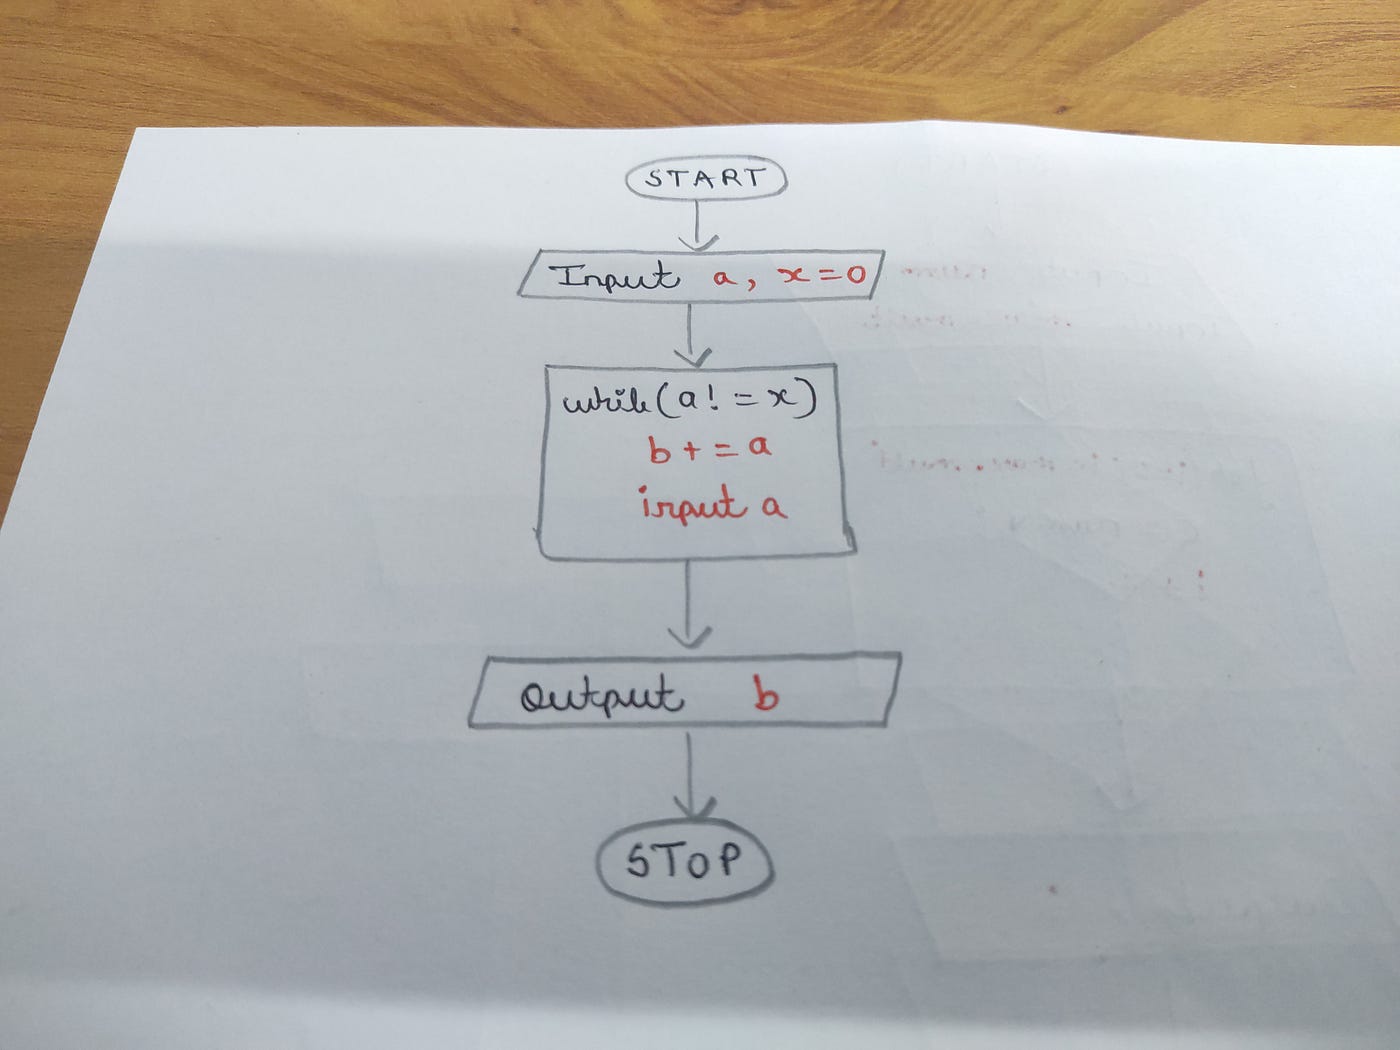 START
Input a, x=0
while(a!=x)
b+=a
input a
Output b
STOP